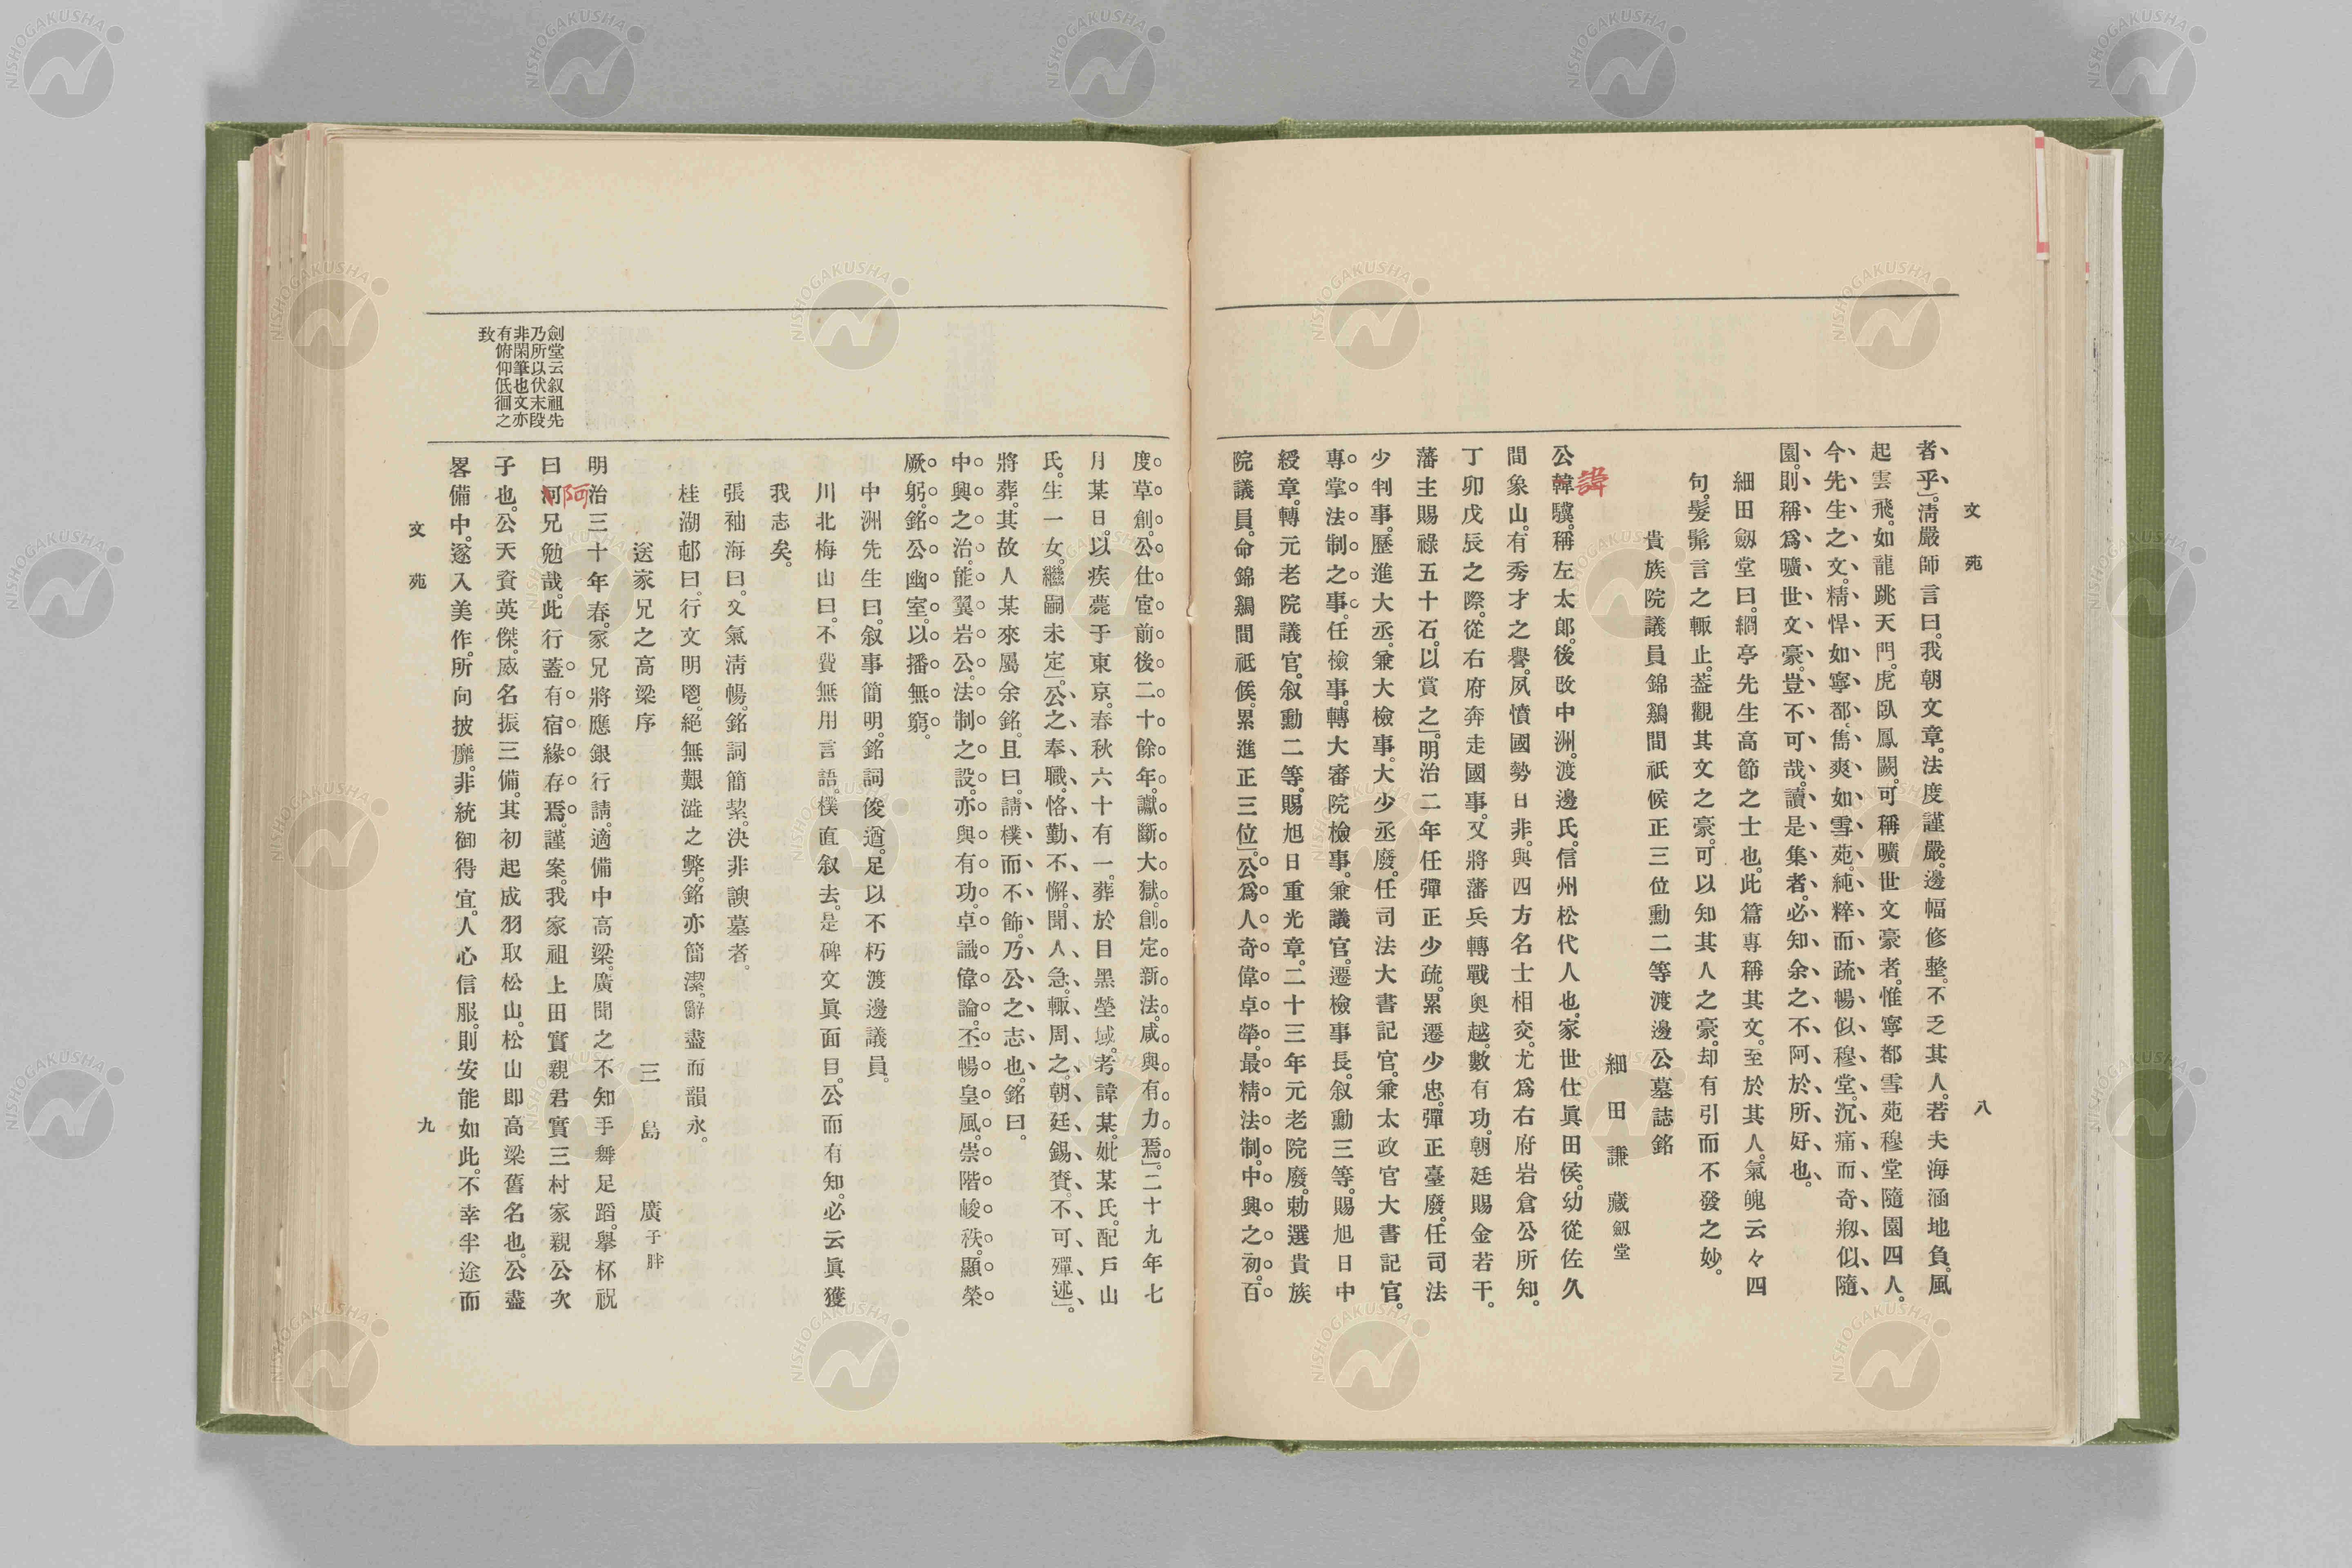 文苑
八
者乎」清嚴師言曰。我朝文章。法度謹嚴。邊幅修整。不乏其人。若夫海涵地負。風
起雲飛。如龍跳天門。虎臥鳳闕。可稱曠世文豪者。惟寧都雪苑穆堂隨園四人。
今先生之文。精悍如寧都。雋爽如雪苑。純粹而疏暢似穆堂。沉痛而奇剏似隨
園。則稱爲曠世文豪。豈不可哉。讀是集者。必知余之不阿於所好也。
細田劔堂曰。綱亭先生高節之士也。此篇專稱其文。至於其人。氣魄云々四
句。髮髴言之輙止。葢觀其文之豪。可以知其人之豪。却有引而不發之妙。
貴族院議員錦鷄間祗候正三位勳二等渡邊公墓誌銘
細田謙藏劔堂
公韓驥。稱左太郎。後改中洲。渡邊氏。信州松代人也。家世仕眞田侯。幼從佐久
諱
間象山。有秀才之譽。夙憤國勢日非。與四方名士相交。尤爲右府岩倉公所知。
丁卯戊辰之際。從右府奔走國事。又將藩兵轉戰奧越。數有功。朝廷賜金若干。
藩主賜祿五十石。以賞之」明治二年任彈正少疏。累遷少忠。彈正臺廢。任司法
少判事。歷進大丞。兼大檢事。大少丞廢。任司法大書記官。兼太政官大書記官。
專掌法制之事。任檢事。轉大審院檢事。兼議官。遷檢事長。叙勳三等。賜旭日中
綬章。轉元老院議官。叙勳二等。賜旭日重光章。二十三年元老院廢。勅選貴族
院議員。命錦鷄間祗候。累進正三位」公爲人奇偉卓犖。最精法制。中興之初。百
度草創。公仕宦前後二十餘年。讞斷大獄。創定新法。咸與有力焉」二十九年七
月某日。以疾薨于東京。春秋六十有一。葬於目黑塋域。考諱某。妣某氏。配戶山
氏。生一女。繼嗣未定」公之奉職。恪勤不懈。聞人急。輙周之。朝廷錫賚。不可殫述」。
將葬。其故人某來屬余銘。且曰。請樸而不飾。乃公之志也。銘曰。
中興之治。能翼岩公。法制之設。亦與有功。卓識偉論。丕暢皇風。崇階峻秩。顯榮
厥躬。銘公幽室。以播無窮。
中洲先生曰。叙事簡明。銘詞俊遒。足以不朽渡邊議員。
川北梅山曰。不費無用言語。樸直叙去。是碑文眞面目。公而有知。必云眞獲
我志矣。
張袖海曰。文氣清暢。銘詞簡絜。決非諛墓者。
桂湖邨曰。行文明鬯。絕無艱澁之弊。銘亦簡潔。辭盡而韻永。
送家兄之高梁序
三島廣子胖
明治三十年春。家兄將應銀行請。適備中高梁。廣聞之不知手舞足蹈。擧杯祝
曰河兄勉哉。此行葢有宿緣存焉。謹案。我家祖上田實親君實三村家親公次
阿
子也。公天資英傑。威名振三備。其初起成羽取松山。松山即高梁舊名也。公盡
畧備中。遂入美作。所向披靡。非統御得宜。人心信服。則安能如此。不幸半途而
劍堂云叙祖先
乃所以伏末段
非閑筆也文亦
有俯仰低徊之
致
文苑
九
NISHOGAKUSHA